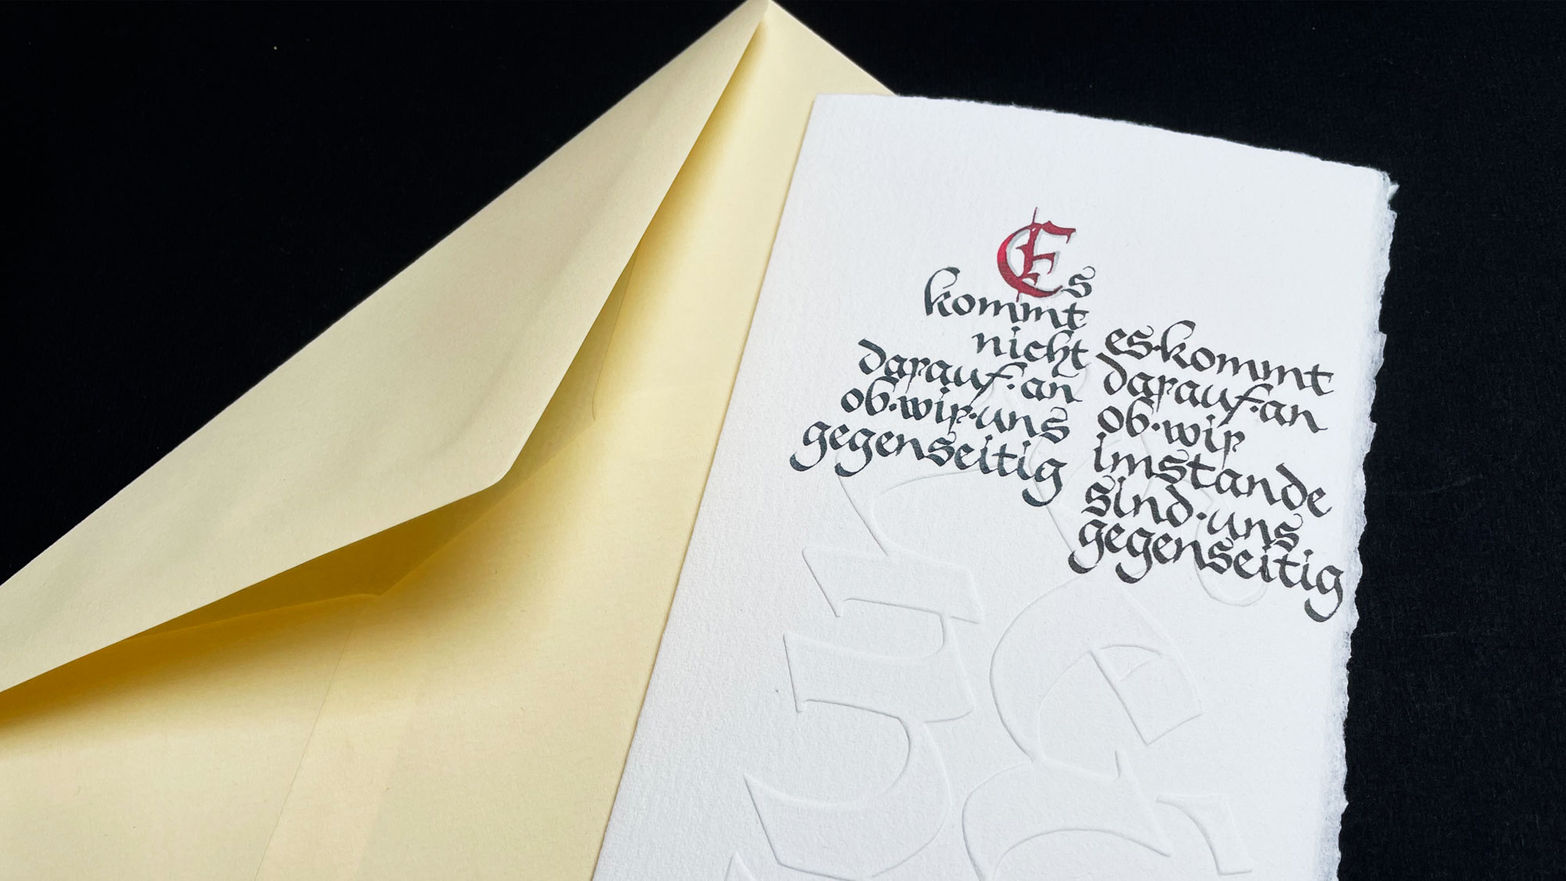 Es
kommt
nicht
darauf·an
ob·wir·uns
gegenseitig
es·kommt
darauf·an
ob·wir
imstande
sind·uns
gegenseitig